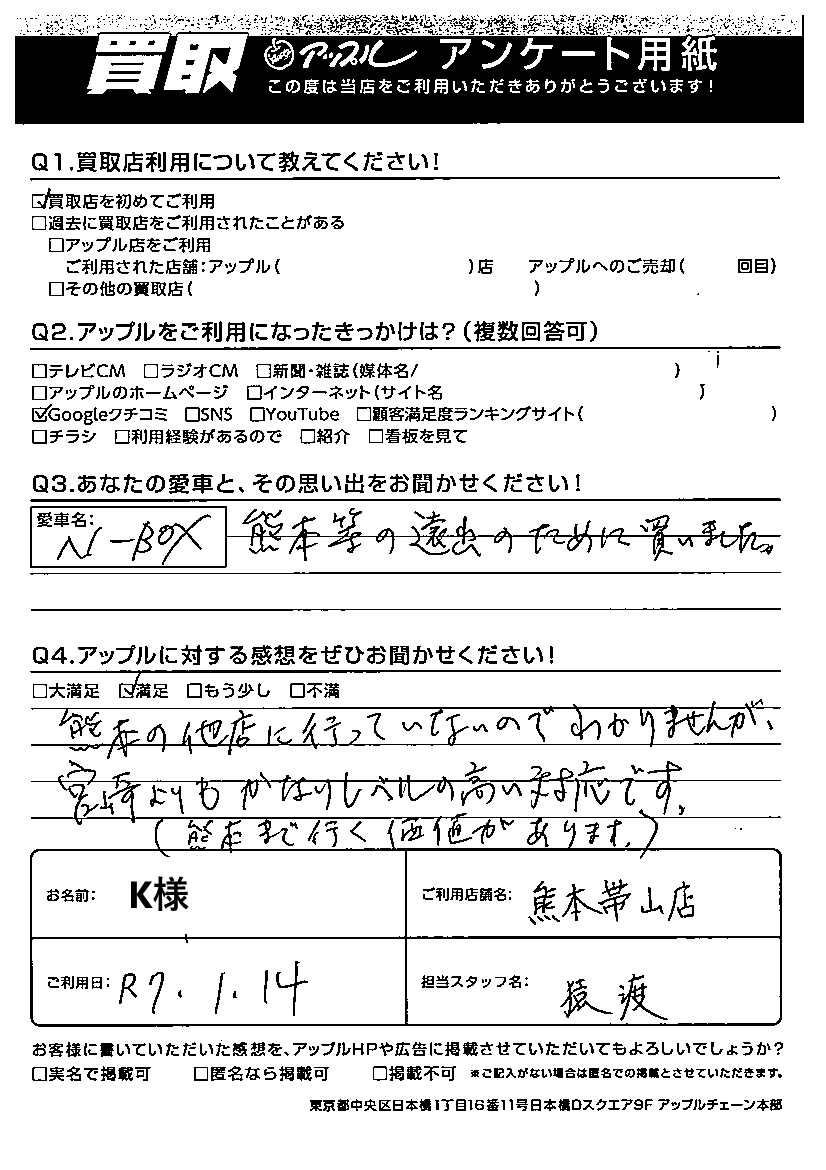 買取 アップル アンケート用紙
この度は当店をご利用いただきありがとうございます!
Q1.買取店利用について教えてください!
☑買取店を初めてご利用
□過去に買取店をご利用されたことがある
□アップル店をご利用
ご利用された店舗:アップル( )店 アップルへのご売却( 回目)
□その他の買取店( )
Q2.アップルをご利用になったきっかけは?(複数回答可)
□テレビCM □ラジオCM □新聞・雑誌(媒体名/ )
□アップルのホームページ □インターネット(サイト名 )
☑Googleクチコミ □SNS □YouTube □顧客満足度ランキングサイト( )
□チラシ □利用経験があるので □紹介 □看板を見て
Q3.あなたの愛車と、その思い出をお聞かせください!
愛車名: N-BOX 熊本等の遠出のために買いました。
Q4.アップルに対する感想をぜひお聞かせください!
□大満足 ☑満足 □もう少し □不満
熊本の他店に行っていないのでわかりませんが、
宮崎よりもかなりレベルの高い対応です。
(熊本まで行く価値があります。)
お名前: K様 ご利用店舗名: 熊本帯山店
ご利用日: R7.1.14 担当スタッフ名: 猿渡
お客様に書いていただいた感想を、アップルHPや広告に掲載させていただいてもよろしいでしょうか?
□実名で掲載可 □匿名なら掲載可 □掲載不可 ※ご記入がない場合は匿名での掲載とさせていただきます。
東京都中央区日本橋1丁目16番11号日本橋Dスクエア9F アップルチェーン本部